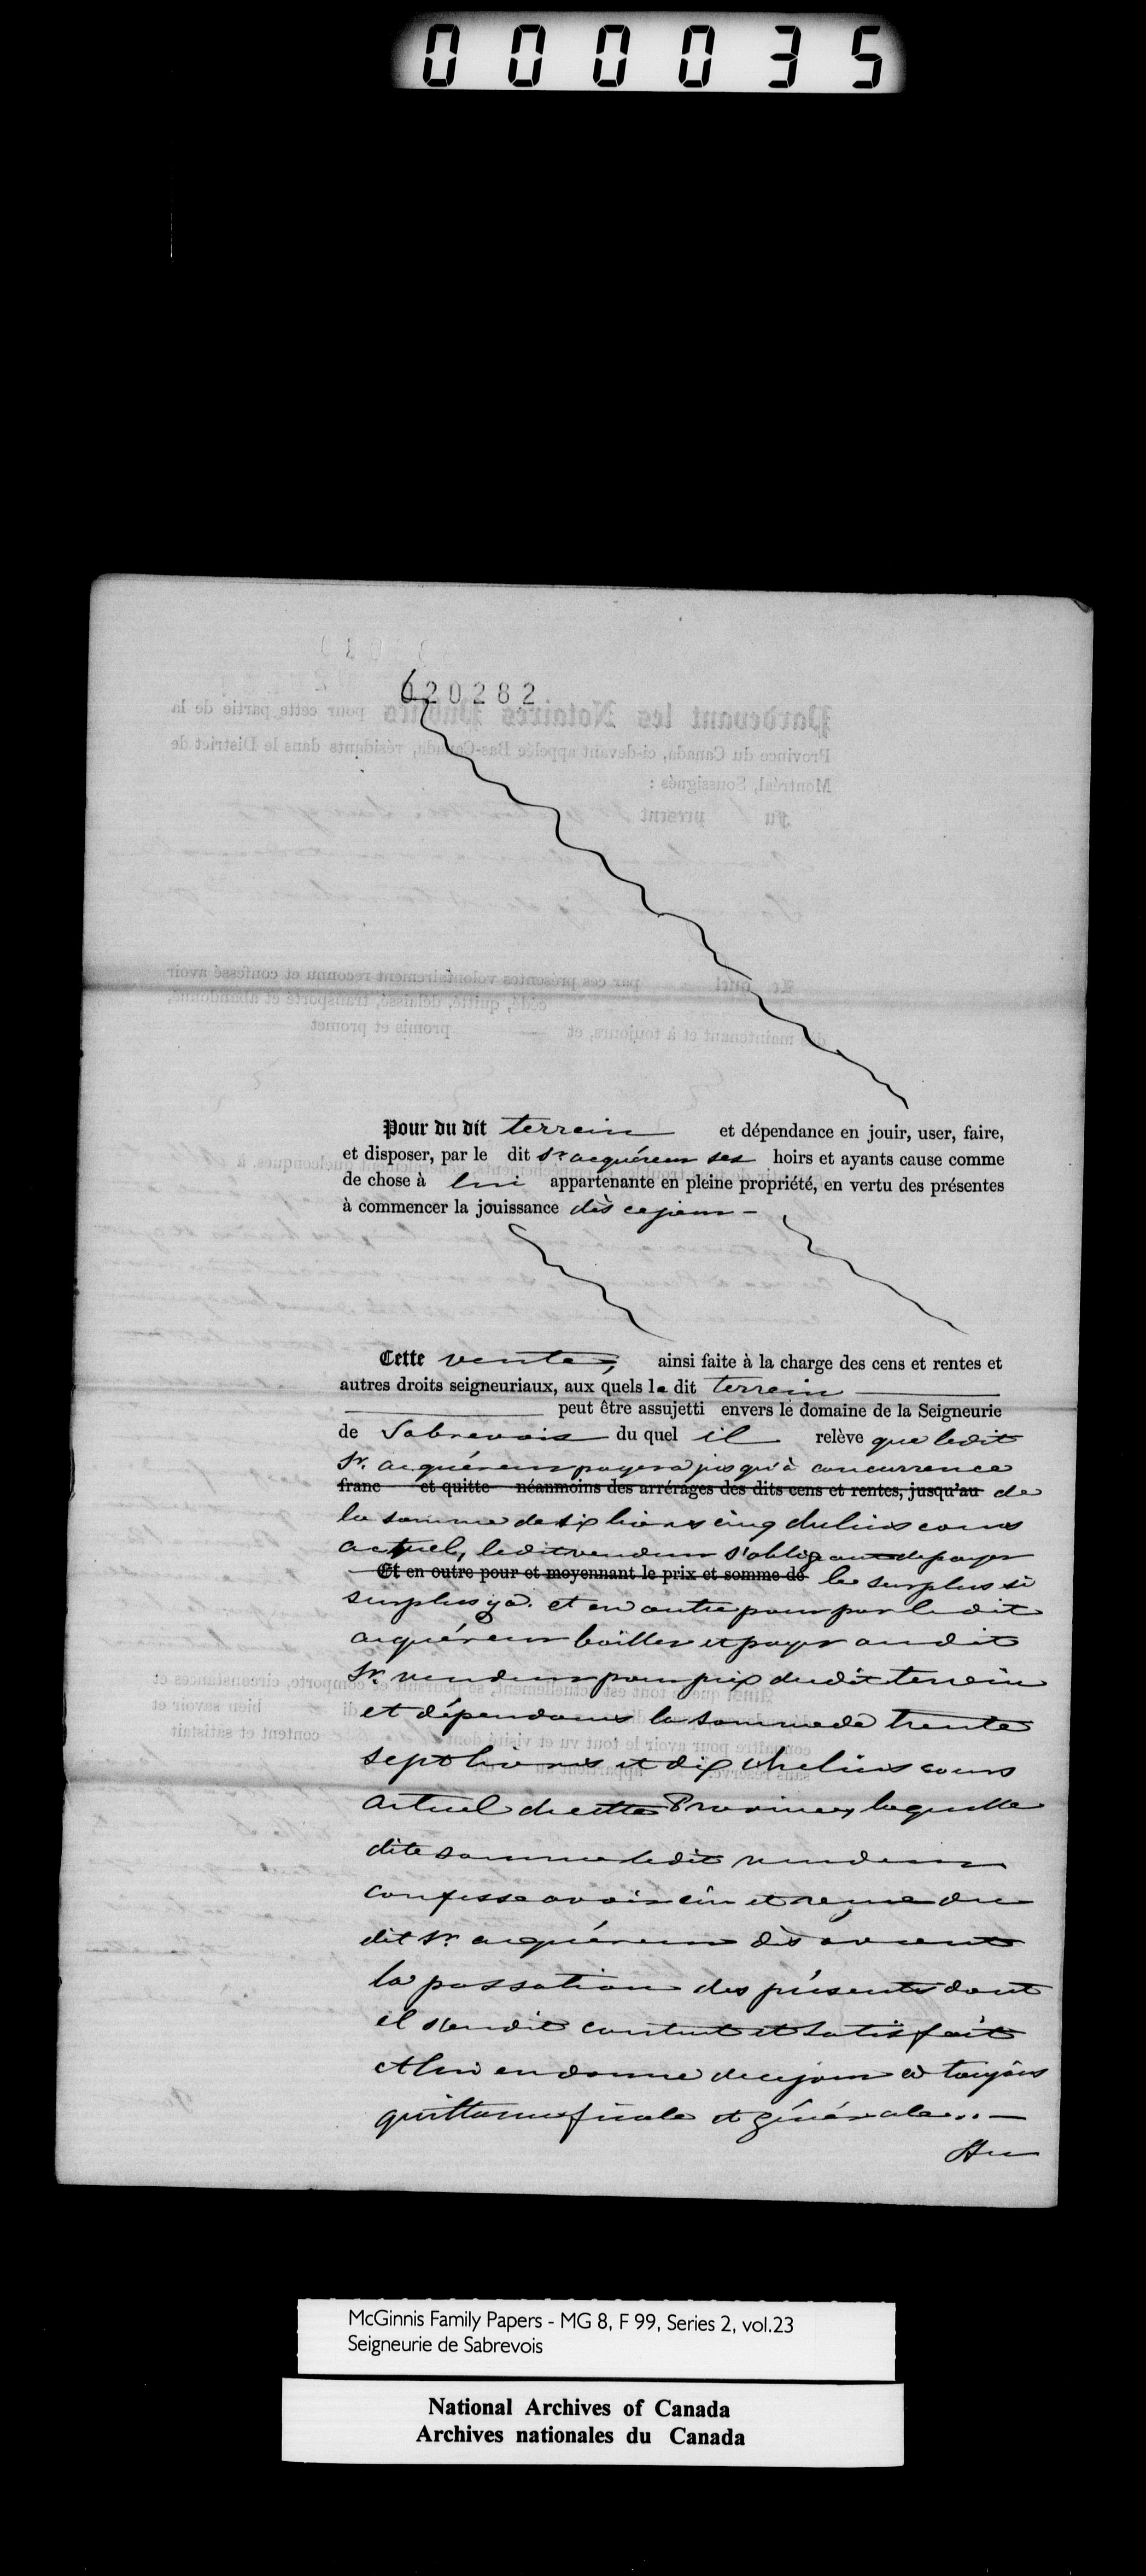 000035
620282
Pour du dit terrein et dépendance en jouir, user, faire,
et disposer, par le dit Sr acquéreur ses hoirs et ayants cause comme
de chose à lui appartenante en pleine propriété, en vertu des présentes
à commencer la jouissance dès ce jour —
Cette vente, ainsi faite à la charge des cens et rentes et
autres droits seigneuriaux, aux quels le dit terrein
peut être assujetti envers le domaine de la Seigneurie
de Sabrevois du quel il relève que ledit
Sr. acquéreur payera jusqu'à concurrence
franc et quitte néanmoins des arrérages des dits cens et rentes, jusqu'au de
la somme de six livres cinq chelins cours
actuel, ledit vendeur s'obligeant de payer
Et en outre pour et moyennant le prix et somme de le surplus si
surplus y a. et en outre pour par le dit
acquéreur bailler et payer audit
Sr. vendeur pour prix dudit terrein
et dépendances la somme de trente
sept livres et dix chelins cours
actuel de cette Province, laquelle
dite somme ledit vendeur
confesse avoir eu et reçue du
dit Sr. acquéreur dès avant
la passation des présentes dont
il se rendit content et satisfait
et lui en donne de ce jour à toujours
quittance finale et générale.. —
Au
McGinnis Family Papers - MG 8, F 99, Series 2, vol.23
Seigneurie de Sabrevois
National Archives of Canada
Archives nationales du Canada